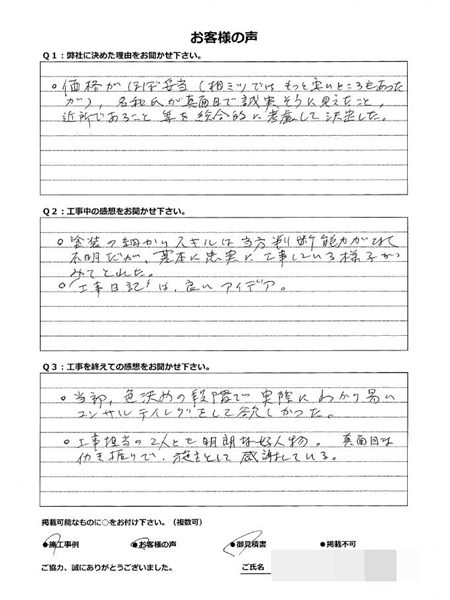 お客様の声
Q1：弊社に決めた理由をお聞かせ下さい。
○価格がほぼ妥当（相ミツではもっと安いところもあった
が），名和氏が真面目で誠実そうに見えたこと，
近所であること 等を総合的に考慮して決定した。
Q2：工事中の感想をお聞かせ下さい。
○塗装の細かいスキルは当方判断能力がなくて
不明だが、基本に忠実に工事している様子が
みてとれた。
○"工事日記"は，良いアイデア。
Q3：工事を終えての感想をお聞かせ下さい。
○当初，色決めの段階で実際にわかり易い
コンサルティングをして欲しかった。
○工事担当の2人とも明朗な好人物。真面目な
働き振りで，施主として感謝している。
掲載可能なものに○をお付け下さい。（複数可）
●施工事例 ●お客様の声 ●御見積書 ●掲載不可
ご協力、誠にありがとうございました。 ご氏名